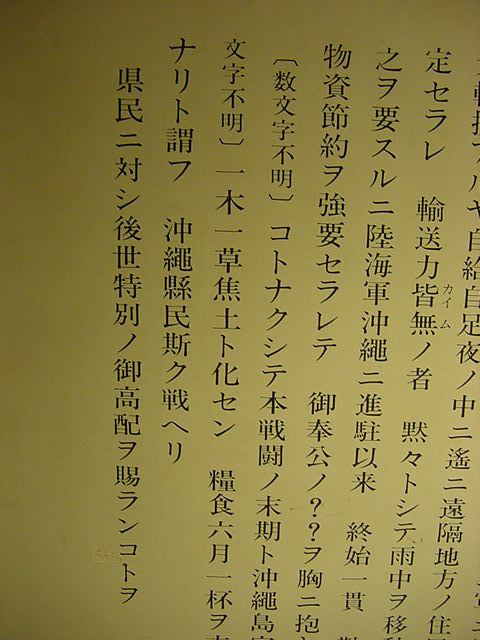 自給自足夜ノ中ニ遙ニ遠隔地方ノ住
定セラレ　輸送力皆無ノ者　黙々トシテ雨中ヲ移
カイム
之ヲ要スルニ陸海軍沖繩ニ進駐以来　終始一貫
物資節約ヲ強要セラレテ　御奉公ノ？？ヲ胸ニ抱
〔数文字不明〕コトナクシテ本戦闘ノ末期ト沖繩島
文字不明〕一木一草焦土ト化セン　糧食六月一杯ヲ
ナリト謂フ　沖繩縣民斯ク戦ヘリ
県民ニ対シ後世特別ノ御高配ヲ賜ランコトヲ